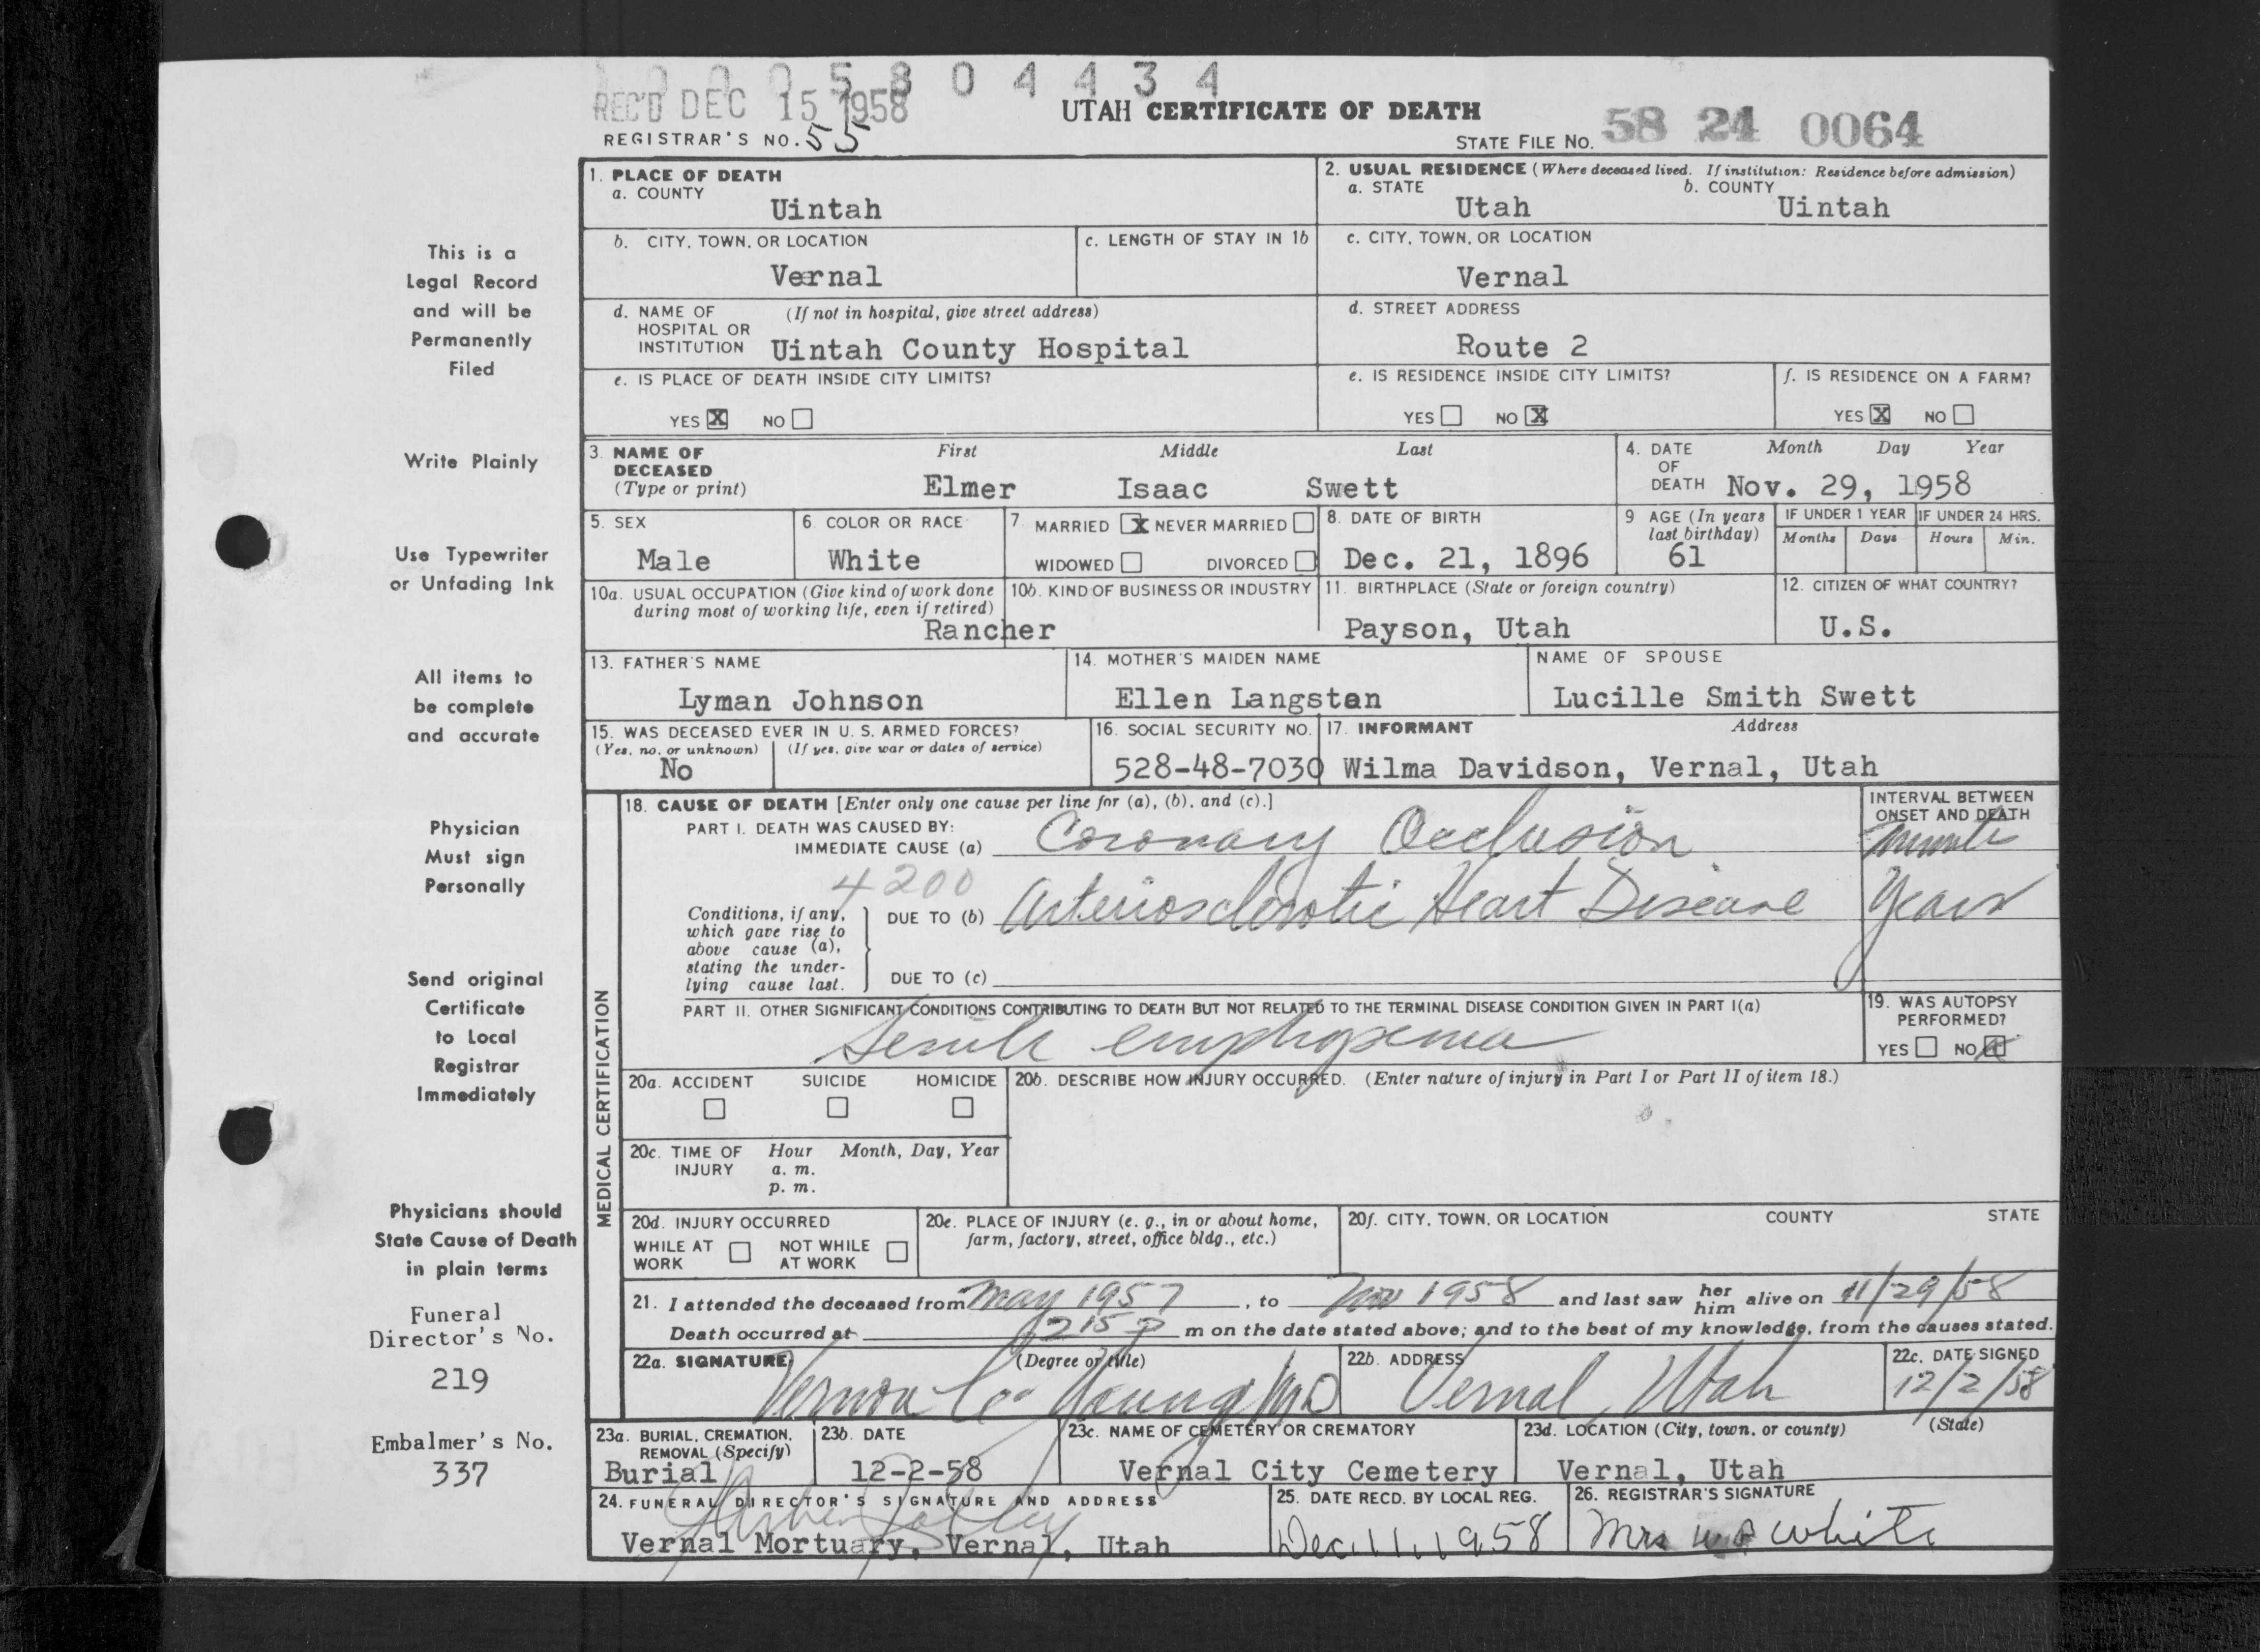 1 0 0 0 5 8 0 4 4 3 4
REC'D DEC 15 1958
UTAH CERTIFICATE OF DEATH
REGISTRAR'S NO. 55
STATE FILE NO. 58 24 0064
1. PLACE OF DEATH
a. COUNTY
Uintah
2. USUAL RESIDENCE (Where deceased lived. If institution: Residence before admission)
a. STATE b. COUNTY
Utah Uintah
b. CITY, TOWN, OR LOCATION
Vernal
c. LENGTH OF STAY IN 1b
c. CITY, TOWN, OR LOCATION
Vernal
d. NAME OF (If not in hospital, give street address)
HOSPITAL OR
INSTITUTION Uintah County Hospital
d. STREET ADDRESS
Route 2
e. IS PLACE OF DEATH INSIDE CITY LIMITS?
YES X NO
e. IS RESIDENCE INSIDE CITY LIMITS?
YES NO X
f. IS RESIDENCE ON A FARM?
YES X NO
3. NAME OF First Middle Last
DECEASED
(Type or print) Elmer Isaac Swett
4. DATE Month Day Year
OF
DEATH Nov. 29, 1958
5. SEX
Male
6. COLOR OR RACE
White
7. MARRIED X NEVER MARRIED
WIDOWED DIVORCED
8. DATE OF BIRTH
Dec. 21, 1896
9 AGE (In years
last birthday)
61
IF UNDER 1 YEAR
Months Days
IF UNDER 24 HRS.
Hours Min.
10a. USUAL OCCUPATION (Give kind of work done
during most of working life, even if retired)
Rancher
10b. KIND OF BUSINESS OR INDUSTRY
11. BIRTHPLACE (State or foreign country)
Payson, Utah
12. CITIZEN OF WHAT COUNTRY?
U.S.
13. FATHER'S NAME
Lyman Johnson
14. MOTHER'S MAIDEN NAME
Ellen Langsten
NAME OF SPOUSE
Lucille Smith Swett
15. WAS DECEASED EVER IN U. S. ARMED FORCES?
(Yes, no, or unknown) (If yes, give war or dates of service)
No
16. SOCIAL SECURITY NO.
528-48-7030
17. INFORMANT Address
Wilma Davidson, Vernal, Utah
MEDICAL CERTIFICATION
18. CAUSE OF DEATH [Enter only one cause per line for (a), (b), and (c).]
PART I. DEATH WAS CAUSED BY:
IMMEDIATE CAUSE (a) Coronary Occlusion
INTERVAL BETWEEN
ONSET AND DEATH
4200
Conditions, if any,
which gave rise to
above cause (a),
stating the under-
lying cause last.
DUE TO (b) Arteriosclerotic Heart Disease Years
DUE TO (c)
PART II. OTHER SIGNIFICANT CONDITIONS CONTRIBUTING TO DEATH BUT NOT RELATED TO THE TERMINAL DISEASE CONDITION GIVEN IN PART I(a)
Senile emphysema
19. WAS AUTOPSY
PERFORMED?
YES NO X
20a. ACCIDENT SUICIDE HOMICIDE
20b. DESCRIBE HOW INJURY OCCURRED. (Enter nature of injury in Part I or Part II of item 18.)
20c. TIME OF Hour Month, Day, Year
INJURY a. m.
p. m.
20d. INJURY OCCURRED
WHILE AT NOT WHILE
WORK AT WORK
20e. PLACE OF INJURY (e. g., in or about home,
farm, factory, street, office bldg., etc.)
20f. CITY, TOWN, OR LOCATION COUNTY STATE
21. I attended the deceased from May 1957, to Nov 1958 and last saw her him alive on 11/29/58
Death occurred at 215 P m on the date stated above; and to the best of my knowledge, from the causes stated.
22a. SIGNATURE (Degree or title)
Vernon Young MD
22b. ADDRESS
Vernal, Utah
22c. DATE SIGNED
12/2/58
23a. BURIAL, CREMATION,
REMOVAL (Specify)
Burial
23b. DATE
12-2-58
23c. NAME OF CEMETERY OR CREMATORY
Vernal City Cemetery
23d. LOCATION (City, town, or county) (State)
Vernal, Utah
24. FUNERAL DIRECTOR'S SIGNATURE AND ADDRESS
Vernal Mortuary, Vernal, Utah
25. DATE RECD. BY LOCAL REG.
Dec. 11, 1958
26. REGISTRAR'S SIGNATURE
Mrs White
This is a
Legal Record
and will be
Permanently
Filed
Write Plainly
Use Typewriter
or Unfading Ink
All items to
be complete
and accurate
Physician
Must sign
Personally
Send original
Certificate
to Local
Registrar
Immediately
Physicians should
State Cause of Death
in plain terms
Funeral
Director's No.
219
Embalmer's No.
337